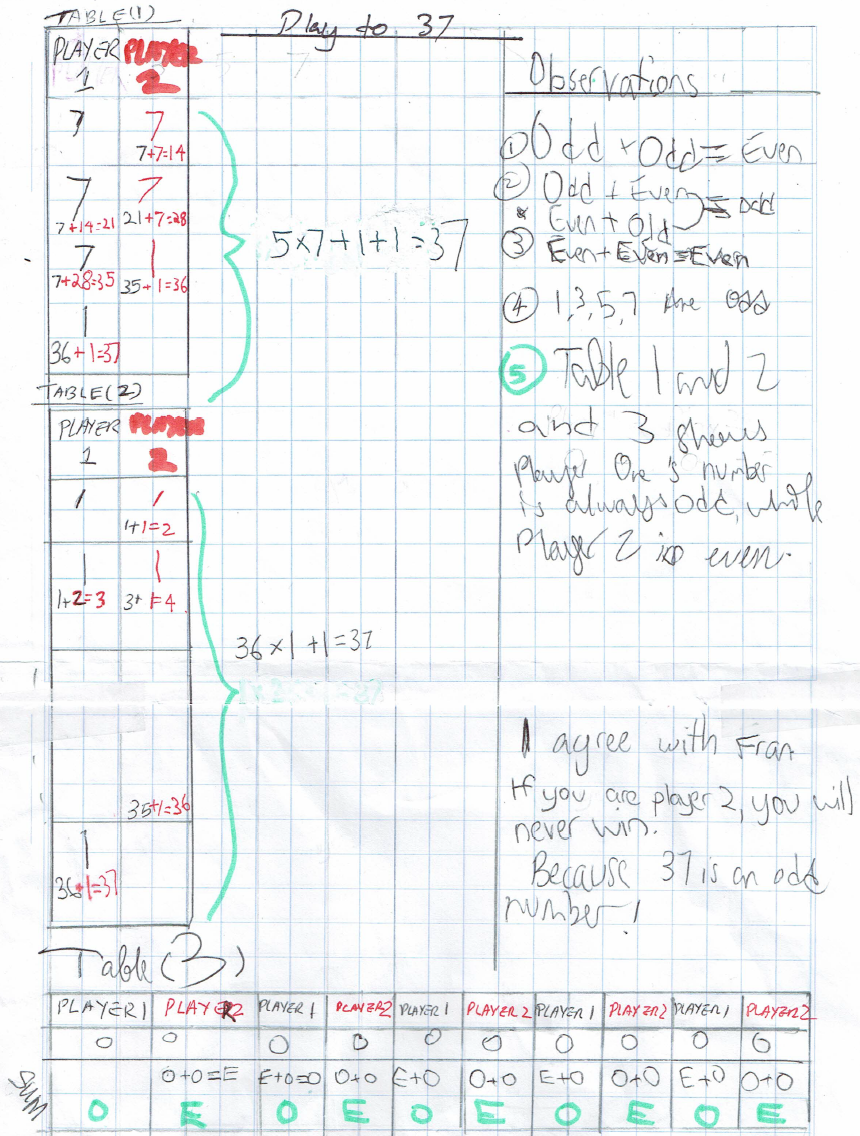 TABLE(1)
Play to 37
PLAYER PLAYER
1 2
7 7
7+7=14
7 7
7+14=21 21+7=28
7 1
7+28=35 35+1=36
1
36+1=37
5×7+1+1=37
TABLE(2)
PLAYER PLAYER
1 2
1 1
1+1=2
1 1
1+2=3 3+1=4
35+1=36
1
36+1=37
36×1+1=37
Observations
① Odd + Odd = Even
② Odd + Even
Even + Odd = odd
③ Even+Even=Even
④ 1,3,5,7 Are Odd
⑤ Table 1 and 2
and 3 shows
Player One's number
is always odd, while
Player 2 is even.
I agree with Fran
If you are player 2, you will
never win.
Because 37 is an odd
number!
Table (3)
PLAYER 1 PLAYER 2 PLAYER 1 PLAYER 2 PLAYER 1 PLAYER 2 PLAYER 1 PLAYER 2 PLAYER 1 PLAYER 2
O O O O O O O O O O
O+O=E E+O=O O+O E+O O+O E+O O+O E+O O+O
SUM O E O E O E O E O E